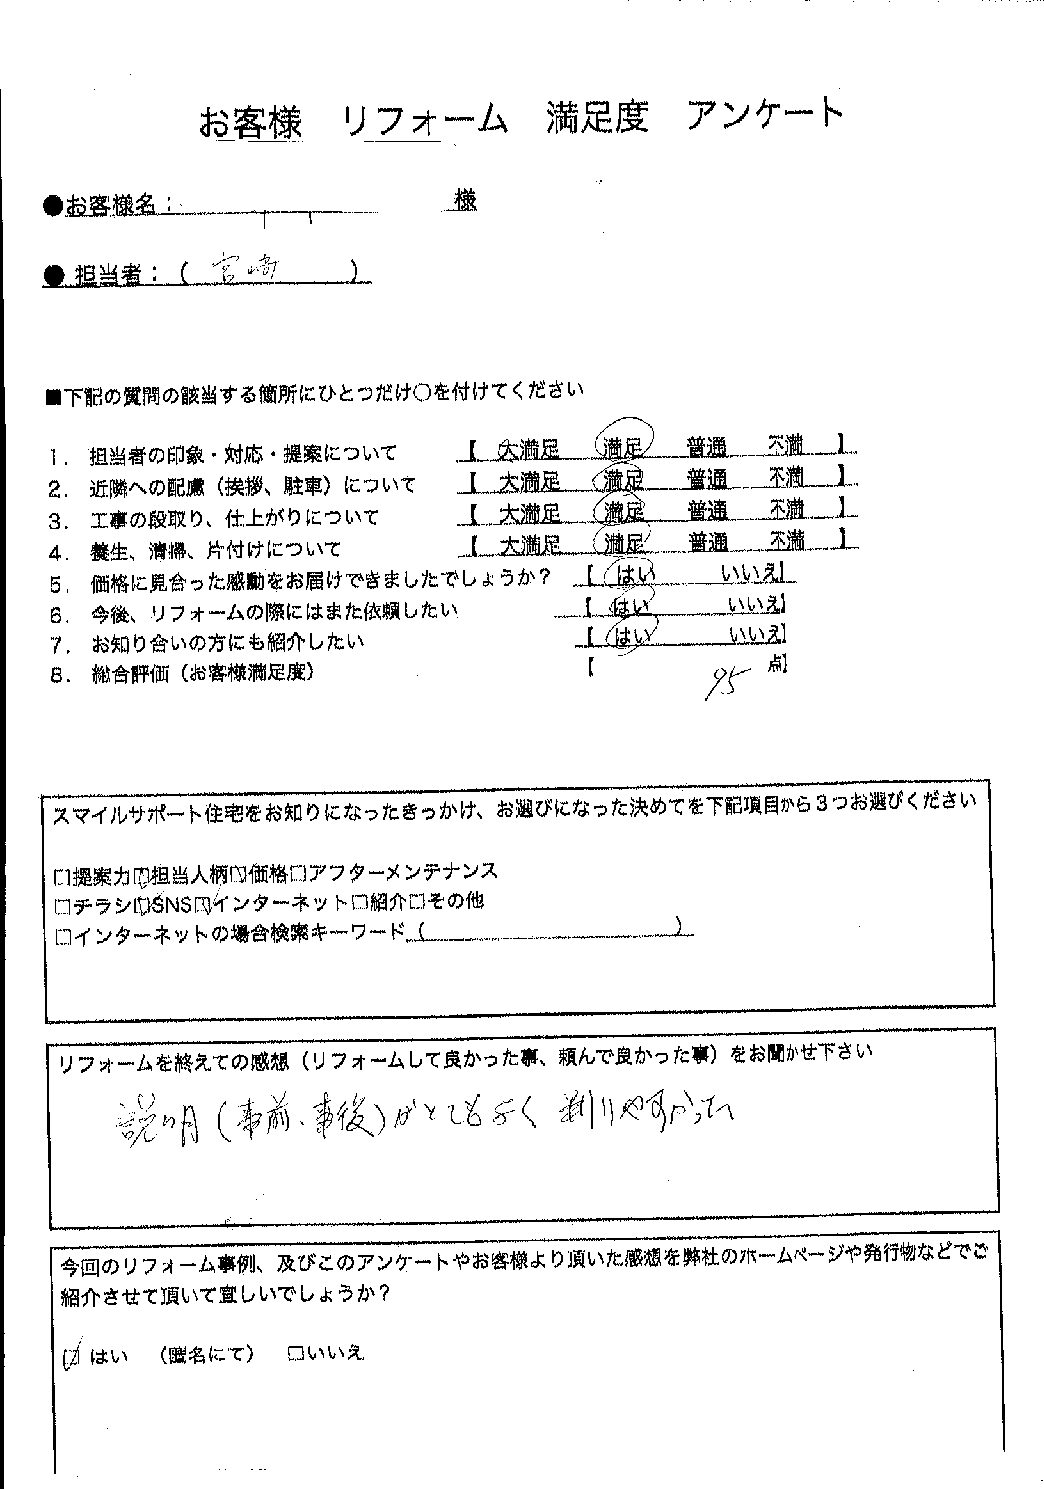 お客様　リフォーム　満足度　アンケート
●お客様名：　　　　　　様
● 担当者：( 宮崎 )
■下記の質問の該当する箇所にひとつだけ○を付けてください
1．担当者の印象・対応・提案について　【 大満足　満足　普通　不満 】
2．近隣への配慮（挨拶、駐車）について　【 大満足　満足　普通　不満 】
3．工事の段取り、仕上がりについて　【 大満足　満足　普通　不満 】
4．養生、清掃、片付けについて　【 大満足　満足　普通　不満 】
5．価格に見合った感動をお届けできましたでしょうか？　【 はい　いいえ】
6．今後、リフォームの際にはまた依頼したい　【 はい　いいえ】
7．お知り合いの方にも紹介したい　【 はい　いいえ】
8．総合評価（お客様満足度）　【 95 点】
スマイルサポート住宅をお知りになったきっかけ、お選びになった決めてを下記項目から３つお選びください
□提案力☑担当人柄□価格□アフターメンテナンス
□チラシ☑SNS☑インターネット□紹介□その他
□インターネットの場合検索キーワード（　　　　　　）
リフォームを終えての感想（リフォームして良かった事、頼んで良かった事）をお聞かせ下さい
説明（事前、事後）がとてもよく判りやすかった
今回のリフォーム事例、及びこのアンケートやお客様より頂いた感想を弊社のホームページや発行物などでご
紹介させて頂いて宜しいでしょうか？
☑ はい　（匿名にて）　□いいえ